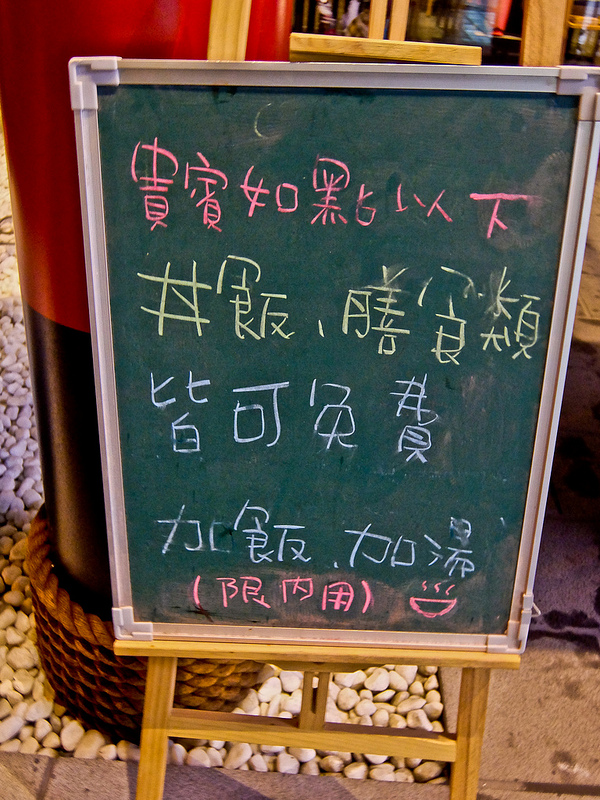 貴賓如點以下
丼飯、膳食類
皆可免費
加飯、加湯
(限內用)